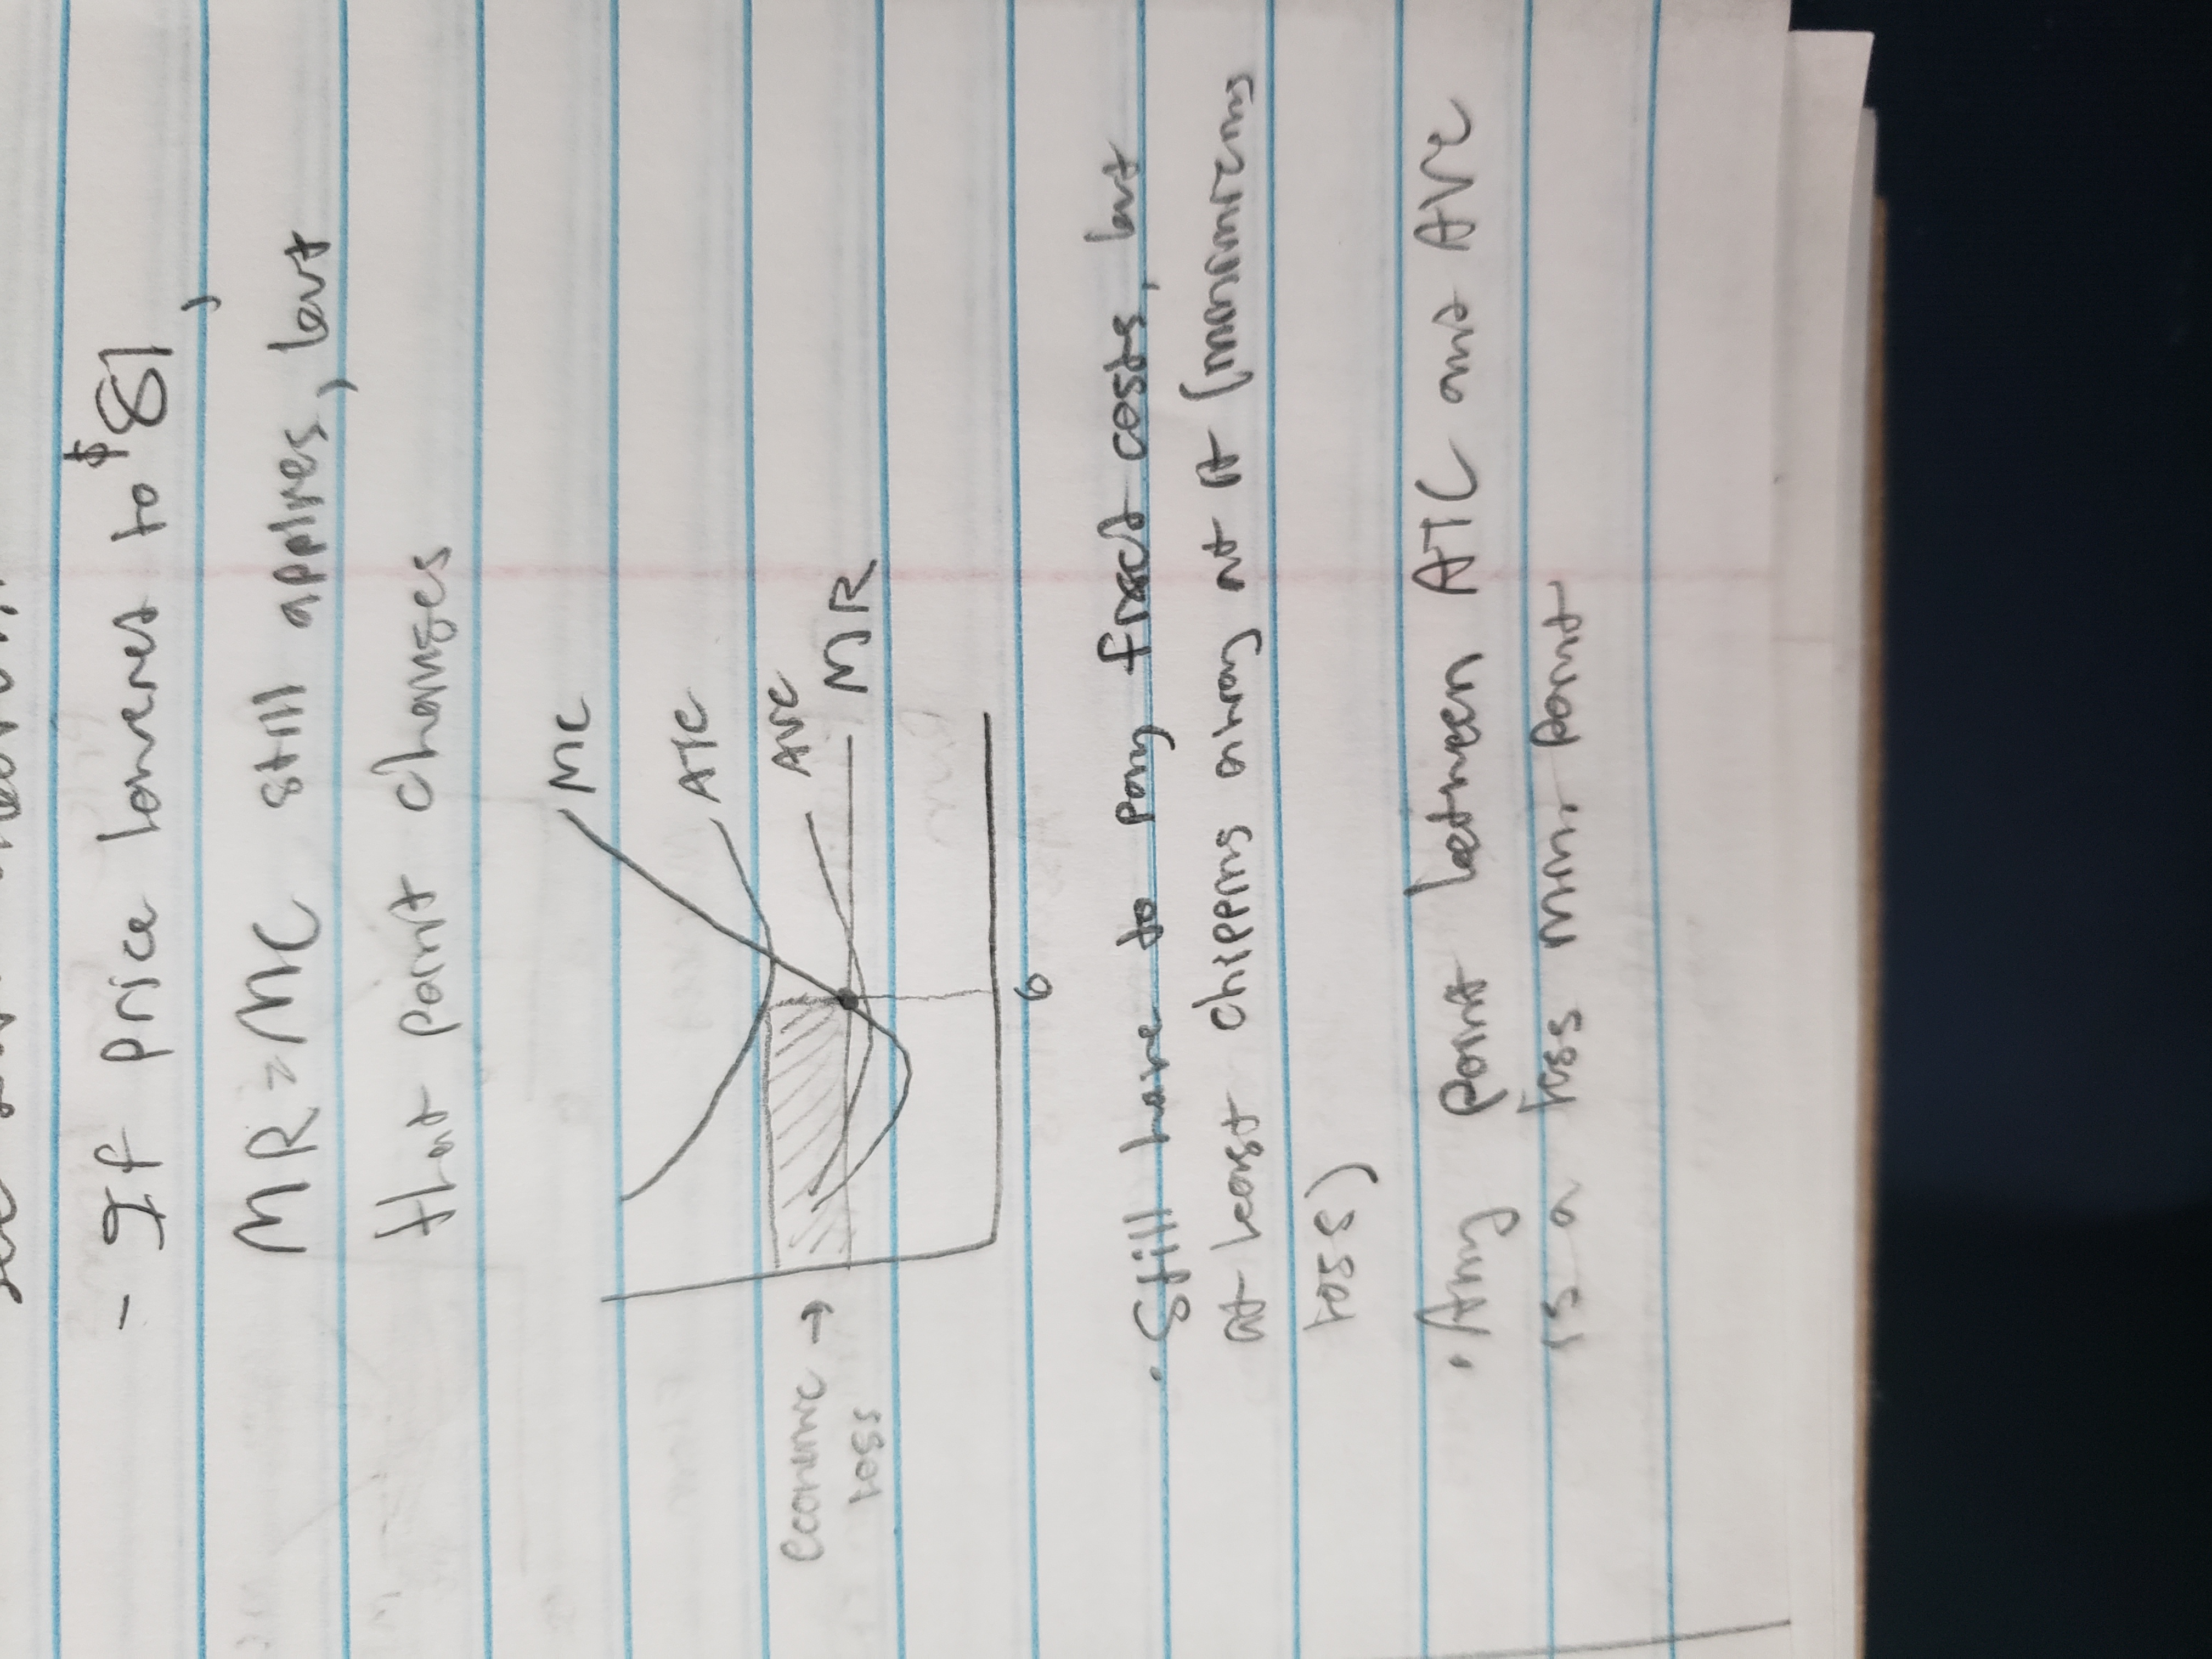 - If price lowers to $81,
MR=MC still applies, but
that point changes
MC
ATC
AVC
MR
economic →
loss
6
· Still have to pay fixed costs, but
at least chipping away at it (minimizing
loss)
· Any point between ATC and AVC
is a loss min. point